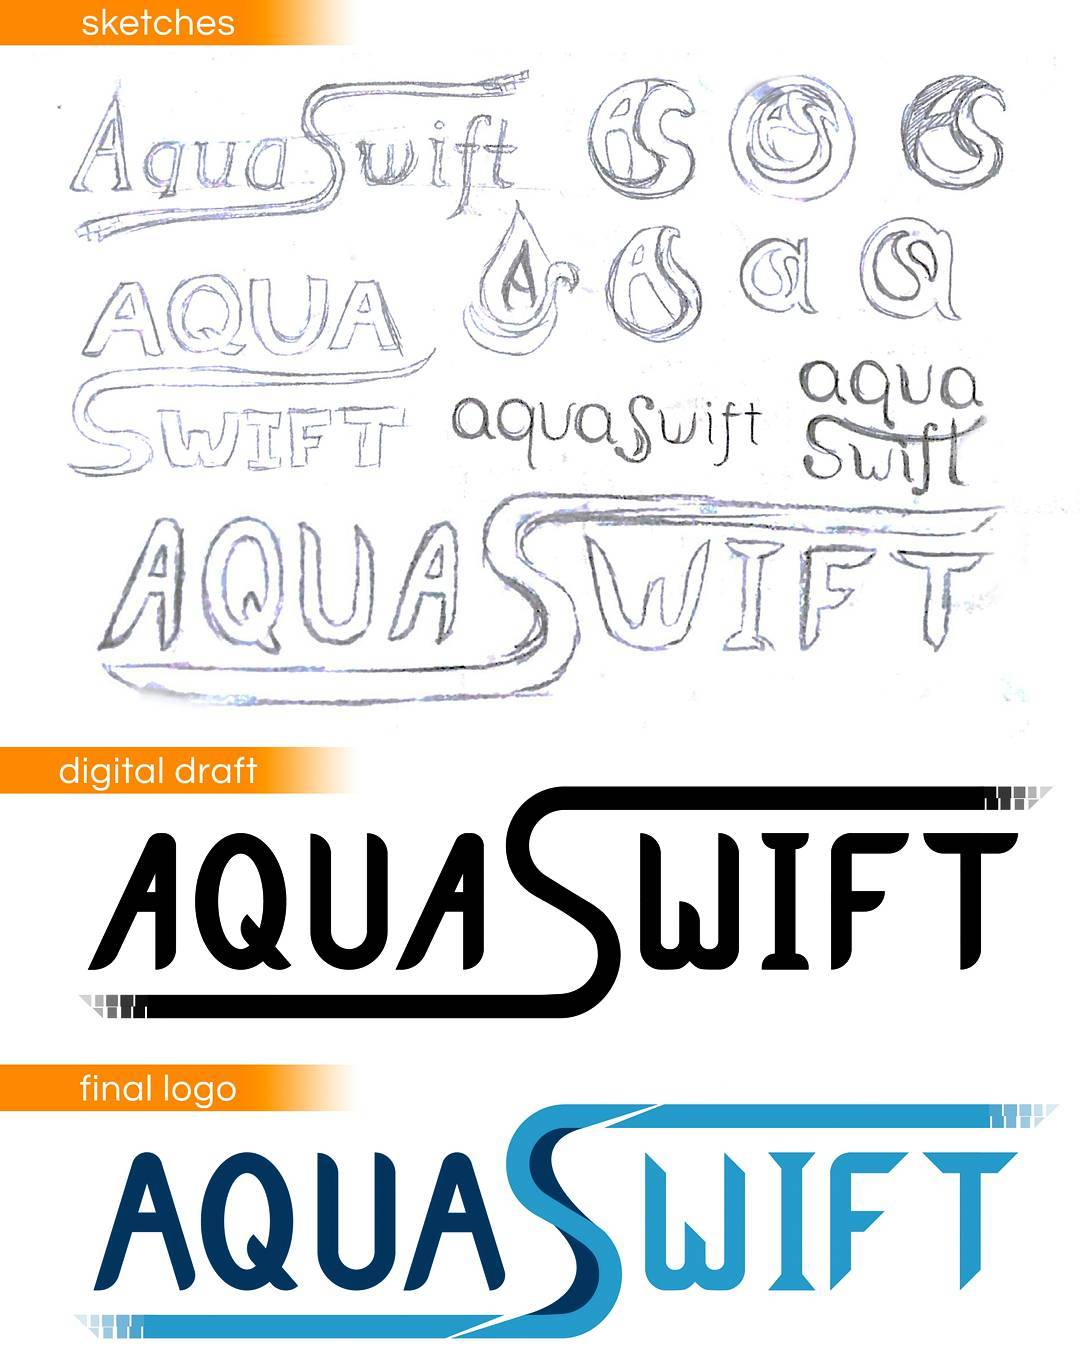 sketches
Aqua Swift
AS
AS
AS
A
A
a
a
AQUA
SWIFT
aquaswift
aqua
swift
AQUASWIFT
digital draft
AQUASWIFT
final logo
AQUASWIFT